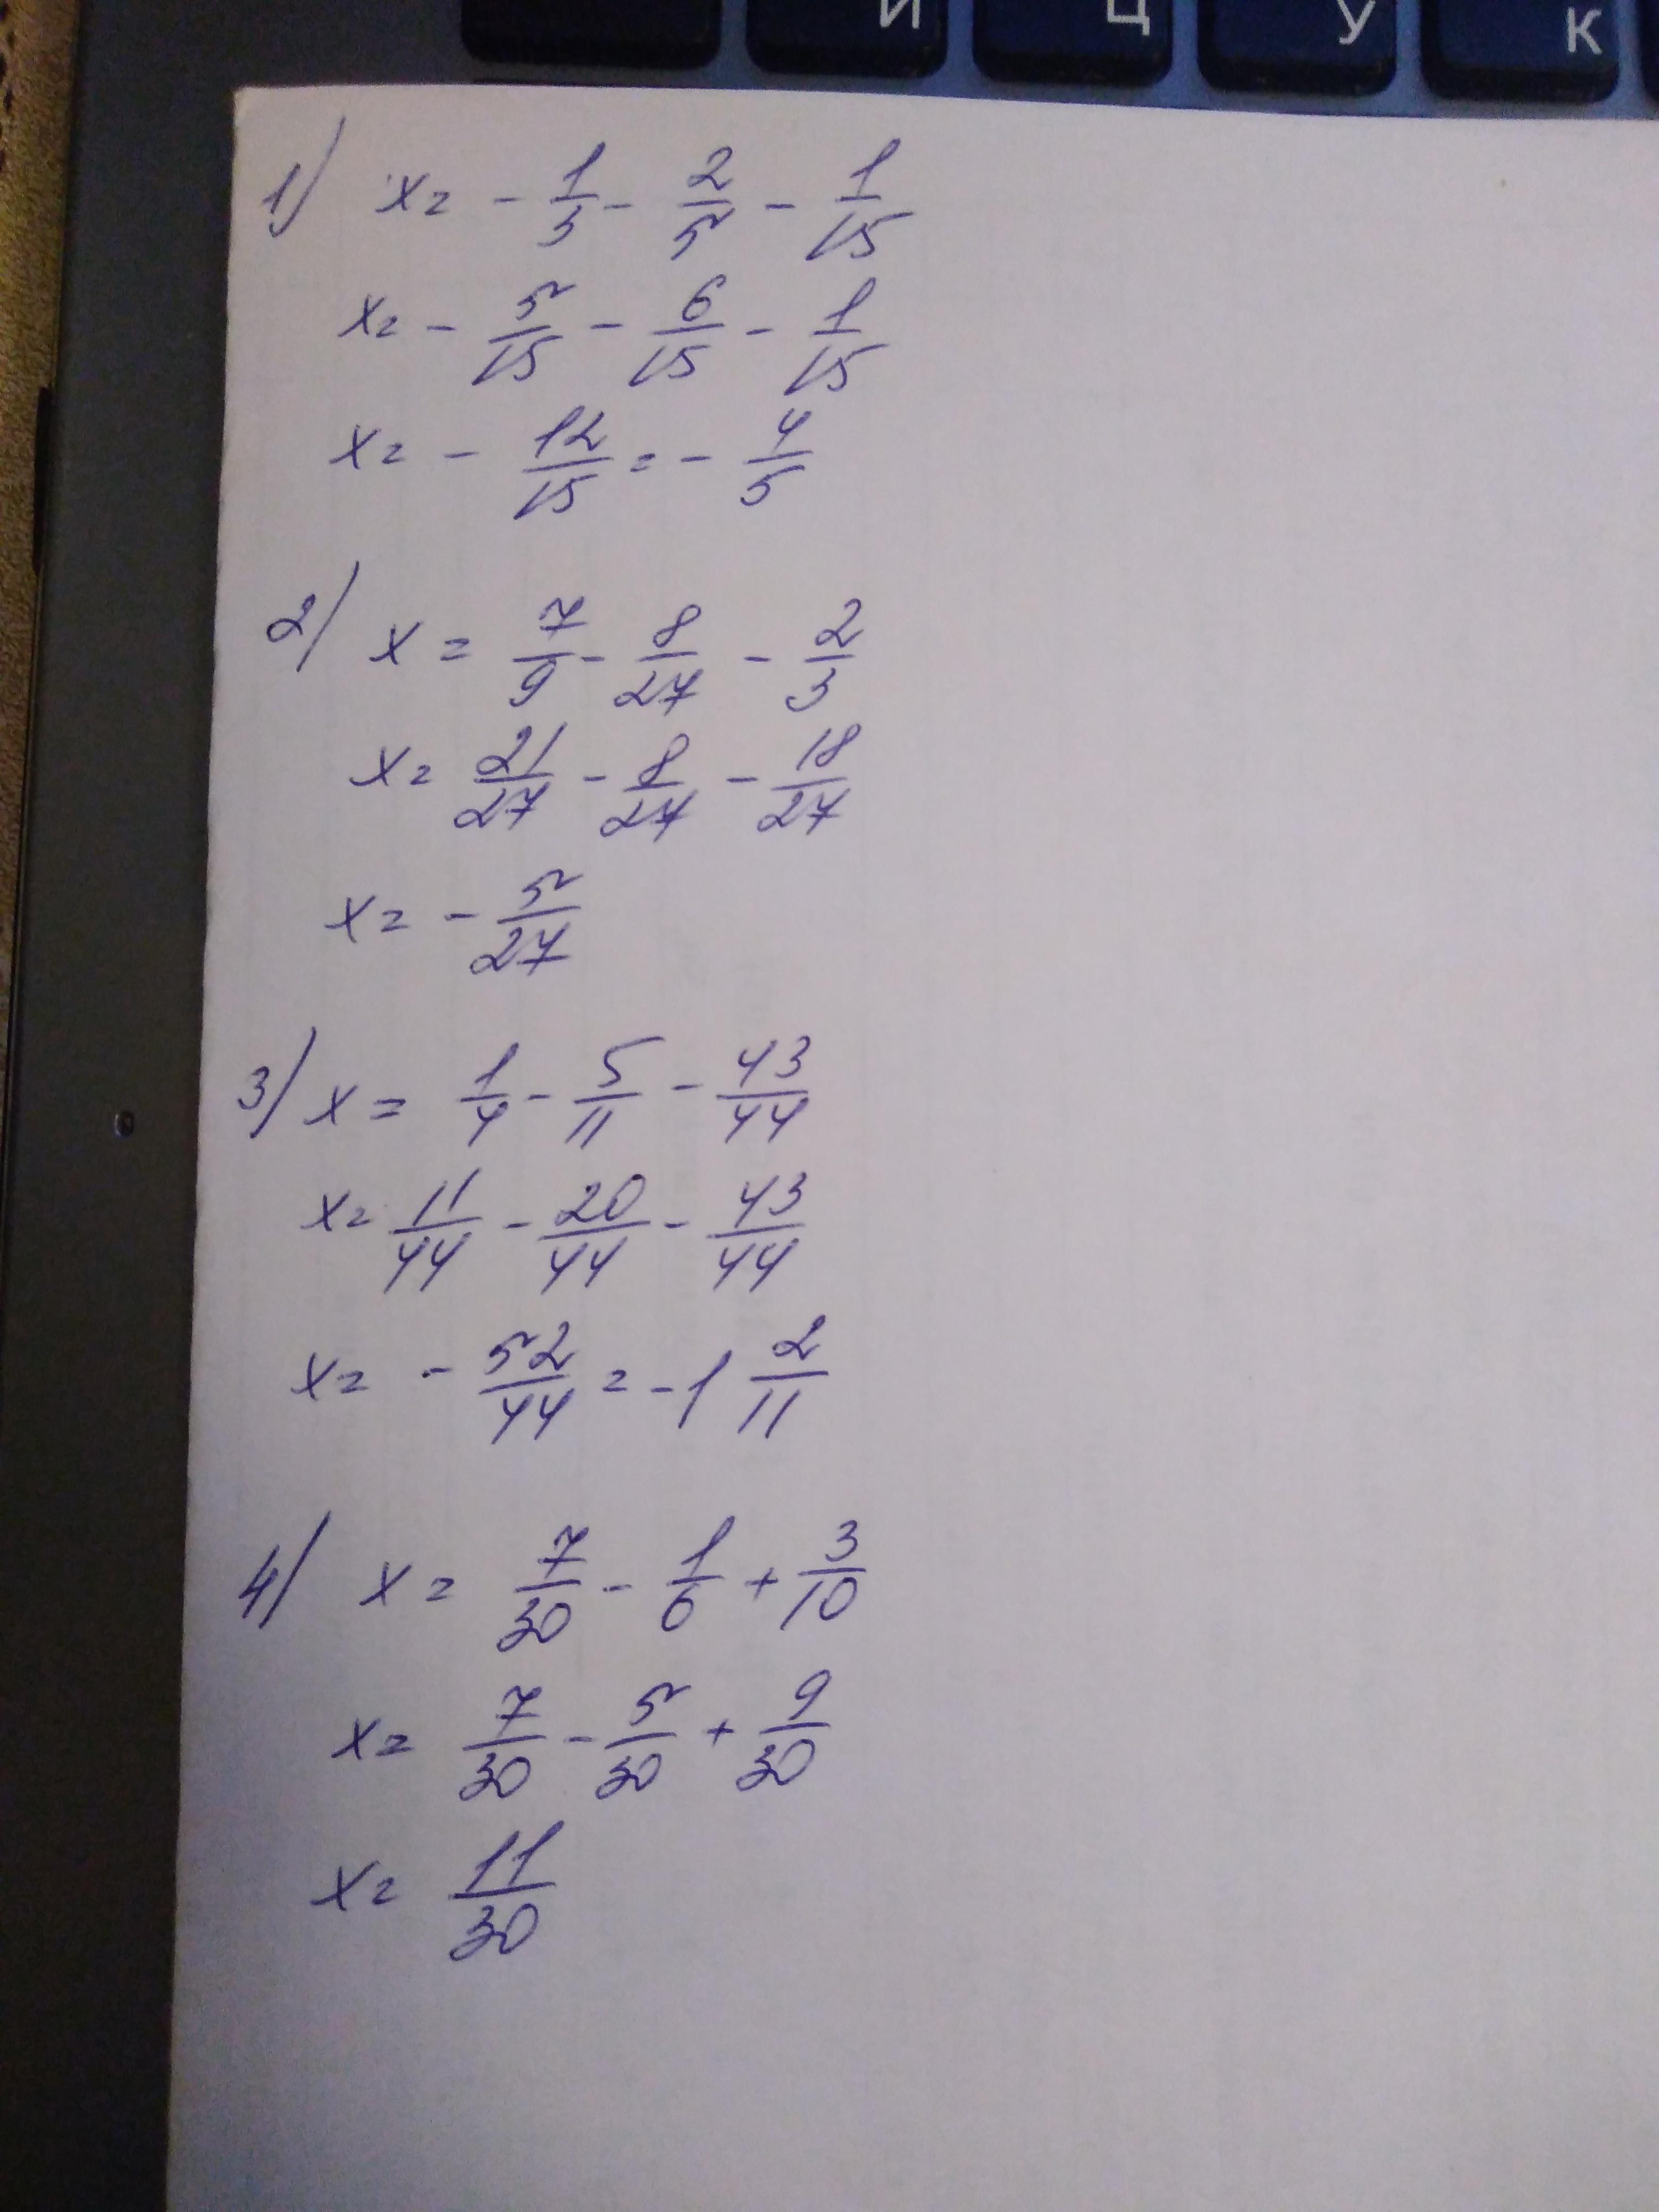 Й Ц У К
1) x = - 1/3 - 2/5 - 1/15
x = - 5/15 - 6/15 - 1/15
x = - 12/15 = - 4/5
2) x = 7/9 - 8/27 - 2/3
x = 21/27 - 8/27 - 18/27
x = - 5/27
3) x = 1/4 - 5/11 - 43/44
x = 11/44 - 20/44 - 43/44
x = - 52/44 = -1 2/11
4) x = 7/30 - 1/6 + 3/10
x = 7/30 - 5/30 + 9/30
x = 11/30